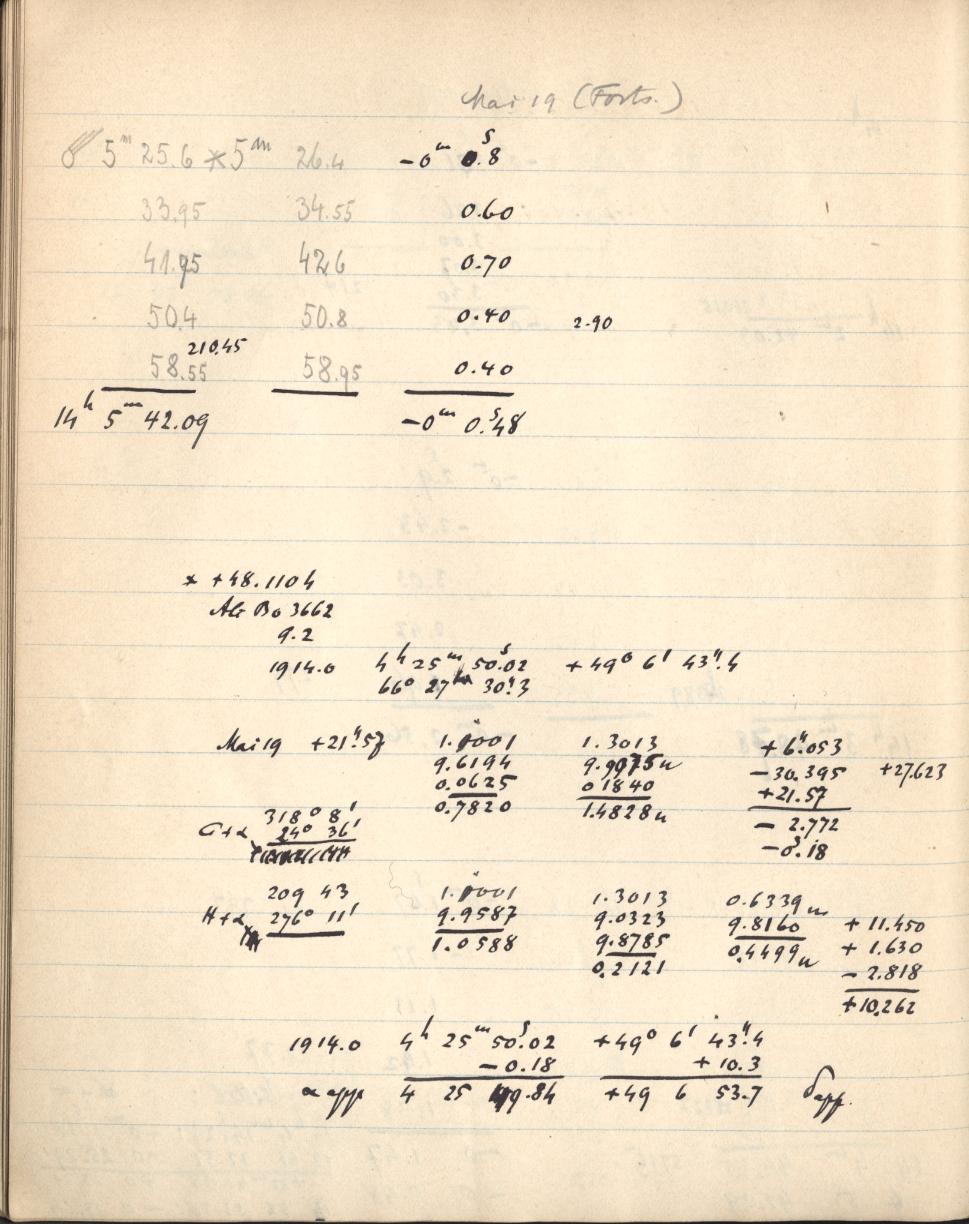 Mai 19 (Forts.)
☄ 5ᵐ 25.6 * 5ᵐ 26.4 −0ᵐ 0.ˢ8
33.95 34.55 0.60
41.95 42.6 0.70
50.4 50.8 0.40 2.90
210.45
58.55 58.95 0.40
14ʰ 5ᵐ 42.09 −0ᵐ 0.ˢ48
* +48.1104
AG Bo 3662
9.2
1914.0 4ʰ 25ᵐ 50.ˢ02 +49° 6' 43".4
66° 27' 30".3
Mai 19 +21".57 1.0001 1.3013 +6".053
9.6194 9.9975n −30.395 +27.623
0.0625 0.1840 +21.57
0.7820 1.4828n − 2.772
G+α 318° 8' −0.ˢ18
240 36'
209 43 1.0001 1.3013 0.6339n
H+α 276° 11' 9.9587 9.0323 9.8160 + 11.450
1.0588 9.8785 0.4499n + 1.630
0.2121 − 2.818
+10.262
1914.0 4ʰ 25ᵐ 50.ˢ02 +49° 6' 43".4
− 0.18 + 10.3
α app 4 25 49.84 +49 6 53.7 δ app.